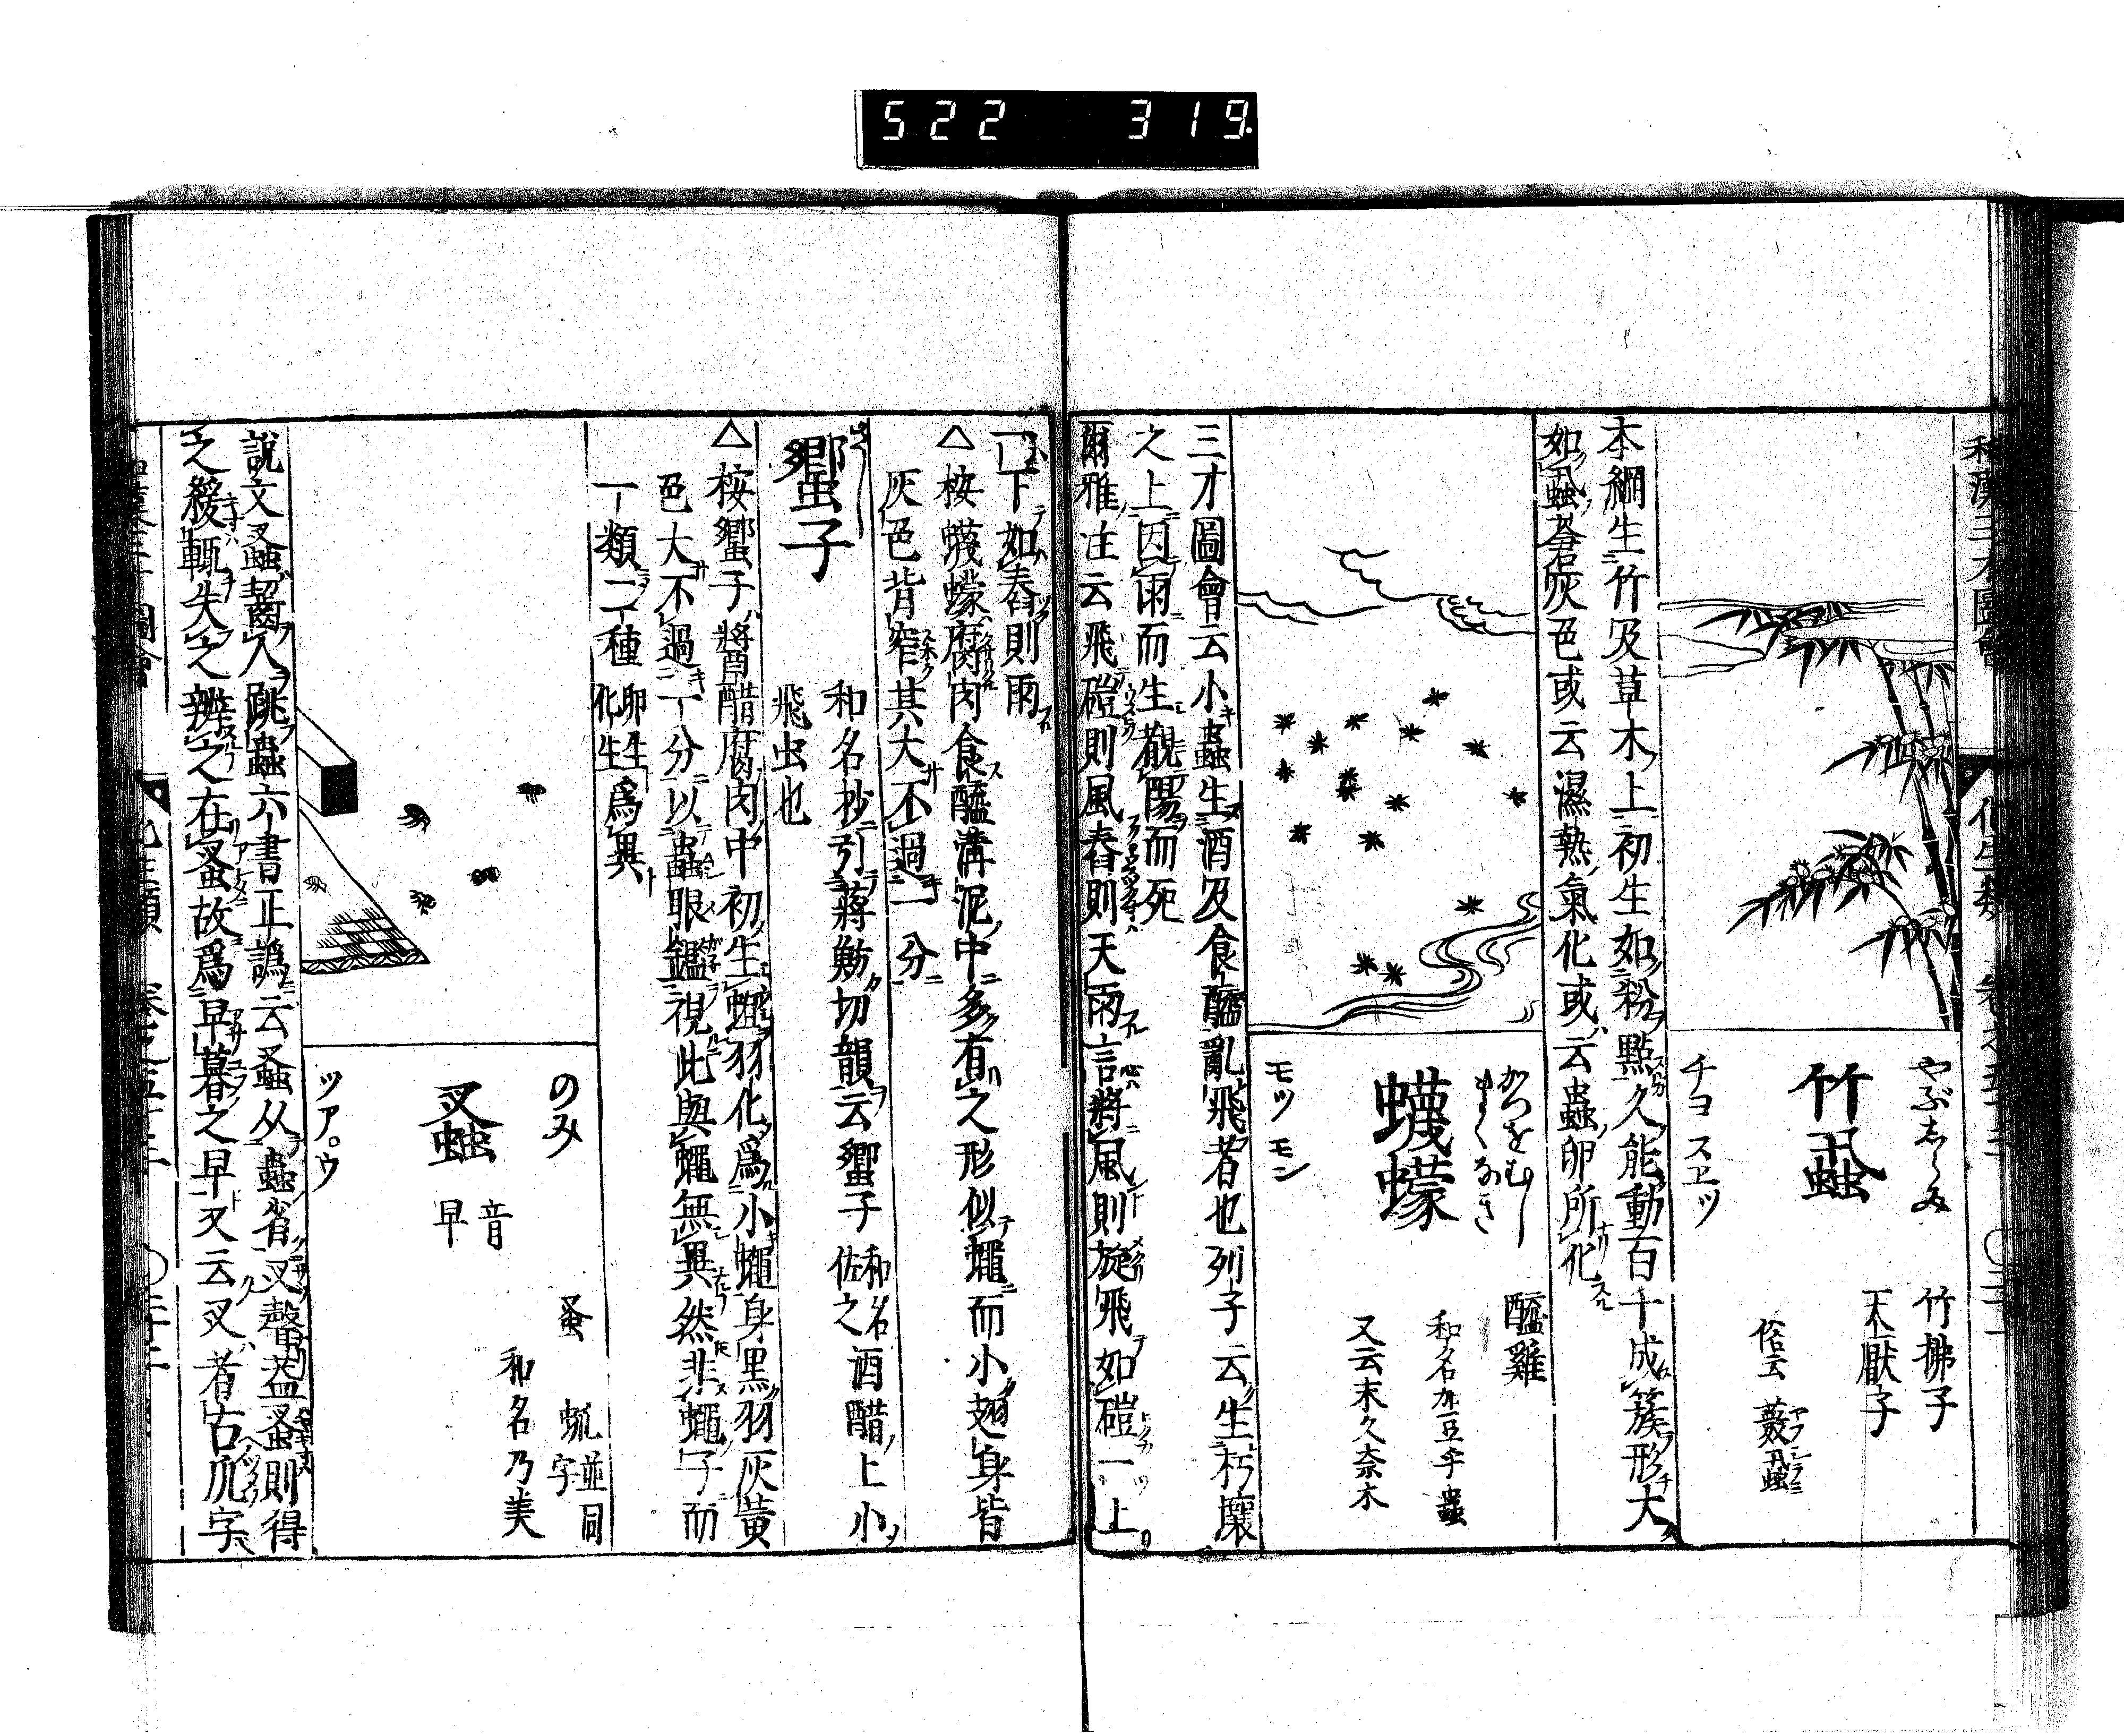 522 319
和漢三才圖會 化生類 卷之五十二 〇二十一
竹蝨
やぶじらみ
チヨスヱツ
竹拂子
天厭子
俗云 藪蝨
本綱生竹及草木上初生如粉點久能動百十成簇形大
如蝨蒼灰色或云濕熱氣化或云蟲卵所化
蠛蠓
かつをむし
まくなき
モツ モン
醯雞
和名加豆乎蟲
又云末久奈木
三才圖會云小蟲生酒及食醯亂飛者也列子云生朽壤
之上因雨而生覩陽而死
爾雅註云飛磑則風舂則天雨言將風則旋飛如磑一上
一下如舂則雨
△按蠛蠓腐肉食醯溝泥中多有之形似蠅而小翅身皆
灰色背窄其大不過一分
蠁子
さし
和名抄引蔣魴切韻云蠁子和名佐之酒醋上小
飛虫也
△按蠁子將醋腐肉中初生蛆羽化爲小蠅身黑羽灰黃
色大不過一分以蟲眼鑑視此與蠅無異然非蠅子而
一類二種卵生化生爲異
蚤
のみ
ツア゜ウ
音早
蚤 蚤字並同
和名乃美
說文蚤齧人跳蟲六書正譌云蚤从蟲省叉聲盖蚤則得
之緩輒失之辨之在蚤故爲早暮之早又云叉者古爪字
化生類 卷之五十二 〇二十二